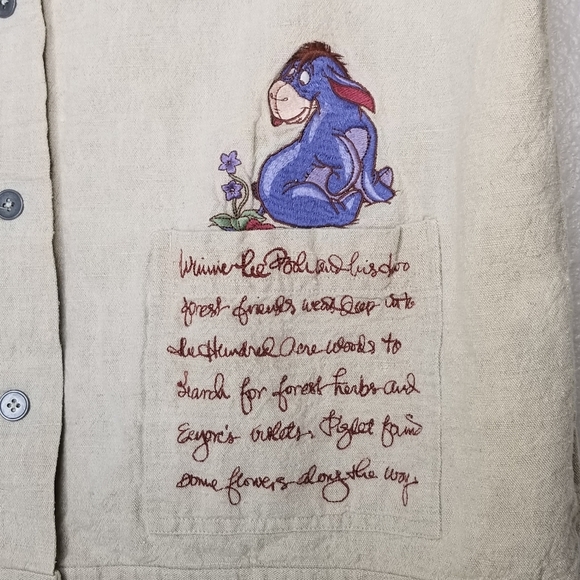 Winnie the Pooh and his two
forest friends went deep into
the Hundred Acre Woods to
Search for forest herbs and
Eeyore's violets. Piglet found
some flowers along the way.